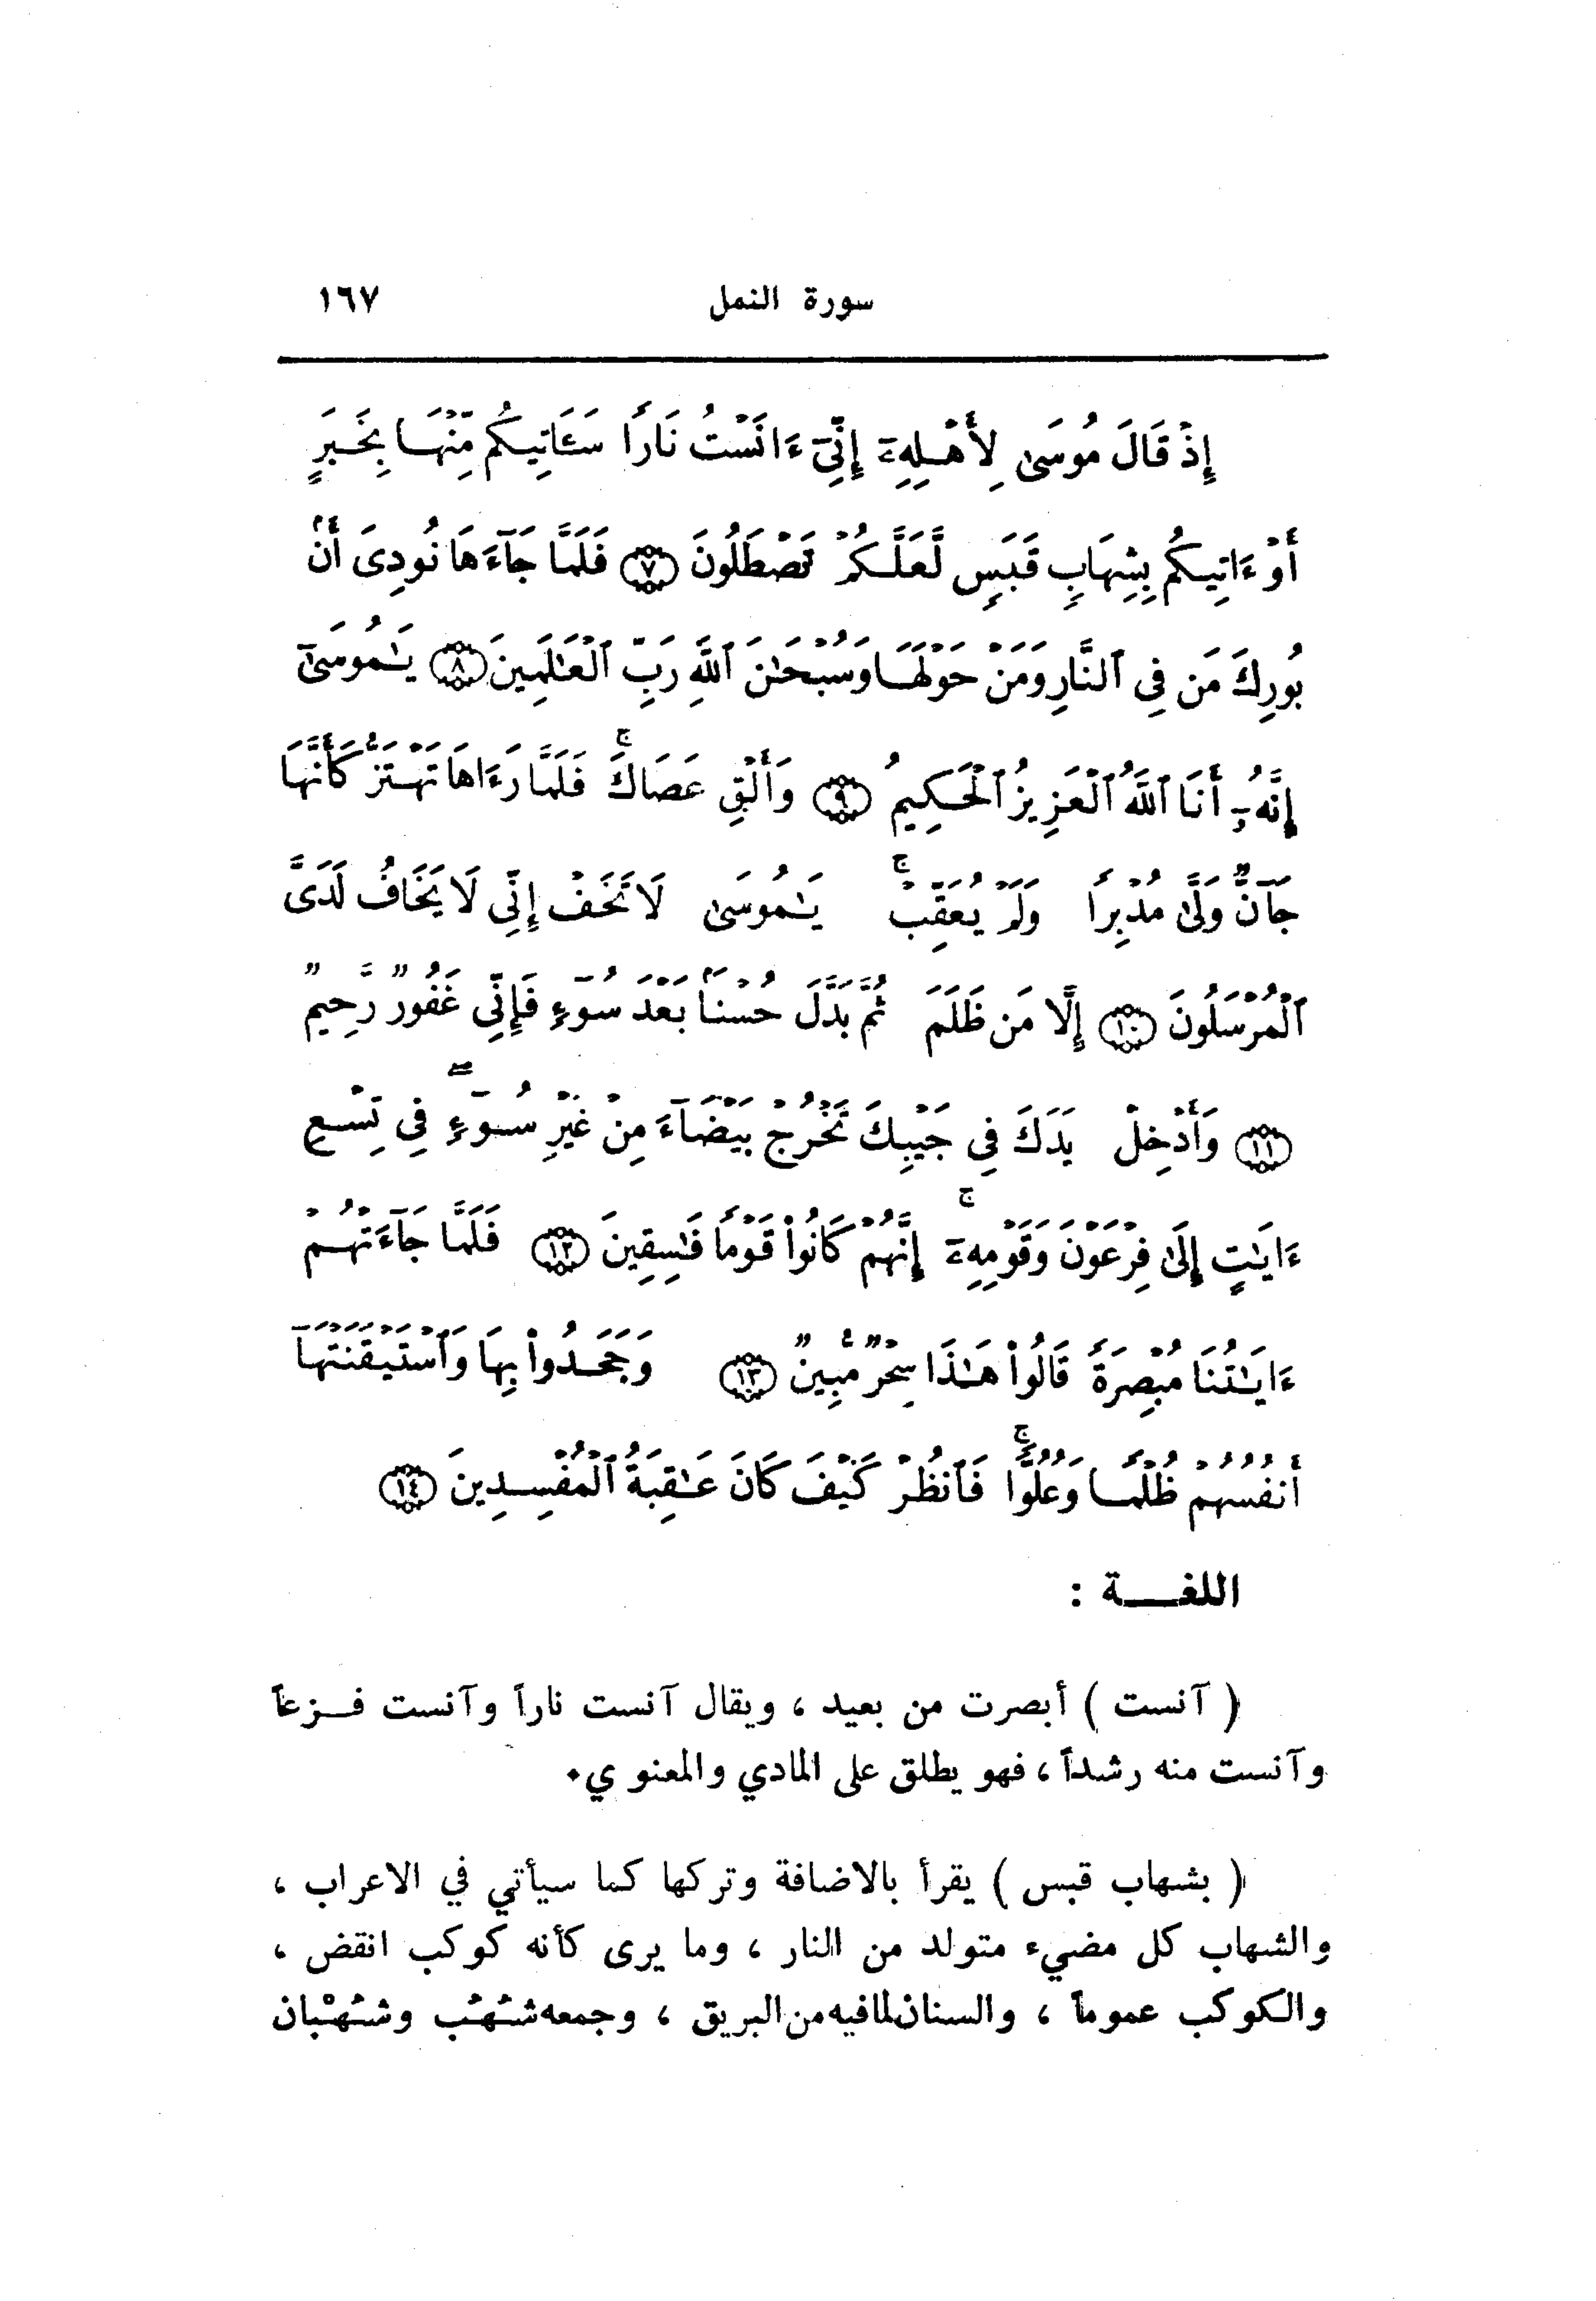 سورة النمل ١٦٧
إِذْ قَالَ مُوسَىٰ لِأَهْلِهِۦٓ إِنِّىٓ ءَانَسْتُ نَارًا سَـَٔاتِيكُم مِّنْهَا بِخَبَرٍ
أَوْ ءَاتِيكُم بِشِهَابٍ قَبَسٍ لَّعَلَّكُمْ تَصْطَلُونَ ﴿٧﴾ فَلَمَّا جَآءَهَا نُودِىَ أَنۢ
بُورِكَ مَن فِى ٱلنَّارِ وَمَنْ حَوْلَهَا وَسُبْحَـٰنَ ٱللَّهِ رَبِّ ٱلْعَـٰلَمِينَ ﴿٨﴾ يَـٰمُوسَىٰٓ
إِنَّهُۥٓ أَنَا ٱللَّهُ ٱلْعَزِيزُ ٱلْحَكِيمُ ﴿٩﴾ وَأَلْقِ عَصَاكَ ۚ فَلَمَّا رَءَاهَا تَهْتَزُّ كَأَنَّهَا
جَآنٌّ وَلَّىٰ مُدْبِرًا وَلَمْ يُعَقِّبْ ۚ يَـٰمُوسَىٰ لَا تَخَفْ إِنِّى لَا يَخَافُ لَدَىَّ
ٱلْمُرْسَلُونَ ﴿١٠﴾ إِلَّا مَن ظَلَمَ ثُمَّ بَدَّلَ حُسْنًۢا بَعْدَ سُوٓءٍ فَإِنِّى غَفُورٌ رَّحِيمٌ
﴿١١﴾ وَأَدْخِلْ يَدَكَ فِى جَيْبِكَ تَخْرُجْ بَيْضَآءَ مِنْ غَيْرِ سُوٓءٍ ۖ فِى تِسْعِ
ءَايَـٰتٍ إِلَىٰ فِرْعَوْنَ وَقَوْمِهِۦٓ ۚ إِنَّهُمْ كَانُوا۟ قَوْمًا فَـٰسِقِينَ ﴿١٢﴾ فَلَمَّا جَآءَتْهُمْ
ءَايَـٰتُنَا مُبْصِرَةً قَالُوا۟ هَـٰذَا سِحْرٌ مُّبِينٌ ﴿١٣﴾ وَجَحَدُوا۟ بِهَا وَٱسْتَيْقَنَتْهَآ
أَنفُسُهُمْ ظُلْمًا وَعُلُوًّا ۚ فَٱنظُرْ كَيْفَ كَانَ عَـٰقِبَةُ ٱلْمُفْسِدِينَ ﴿١٤﴾
اللغـــة :
( آنست ) أبصرت من بعيد ، ويقال آنست ناراً وآنست فـزعاً
وآنست منه رشداً ، فهو يطلق على المادي والمعنوي٠
( بشهاب قبس ) يقرأ بالاضافة وتركها كما سيأتي في الاعراب ،
والشهاب كل مضيء متولد من النار ، وما يرى كأنه كوكب انقض ،
والكوكب عموماً ، والسنان لما فيه من البريق ، وجمعه شُهُب وشُهْبان